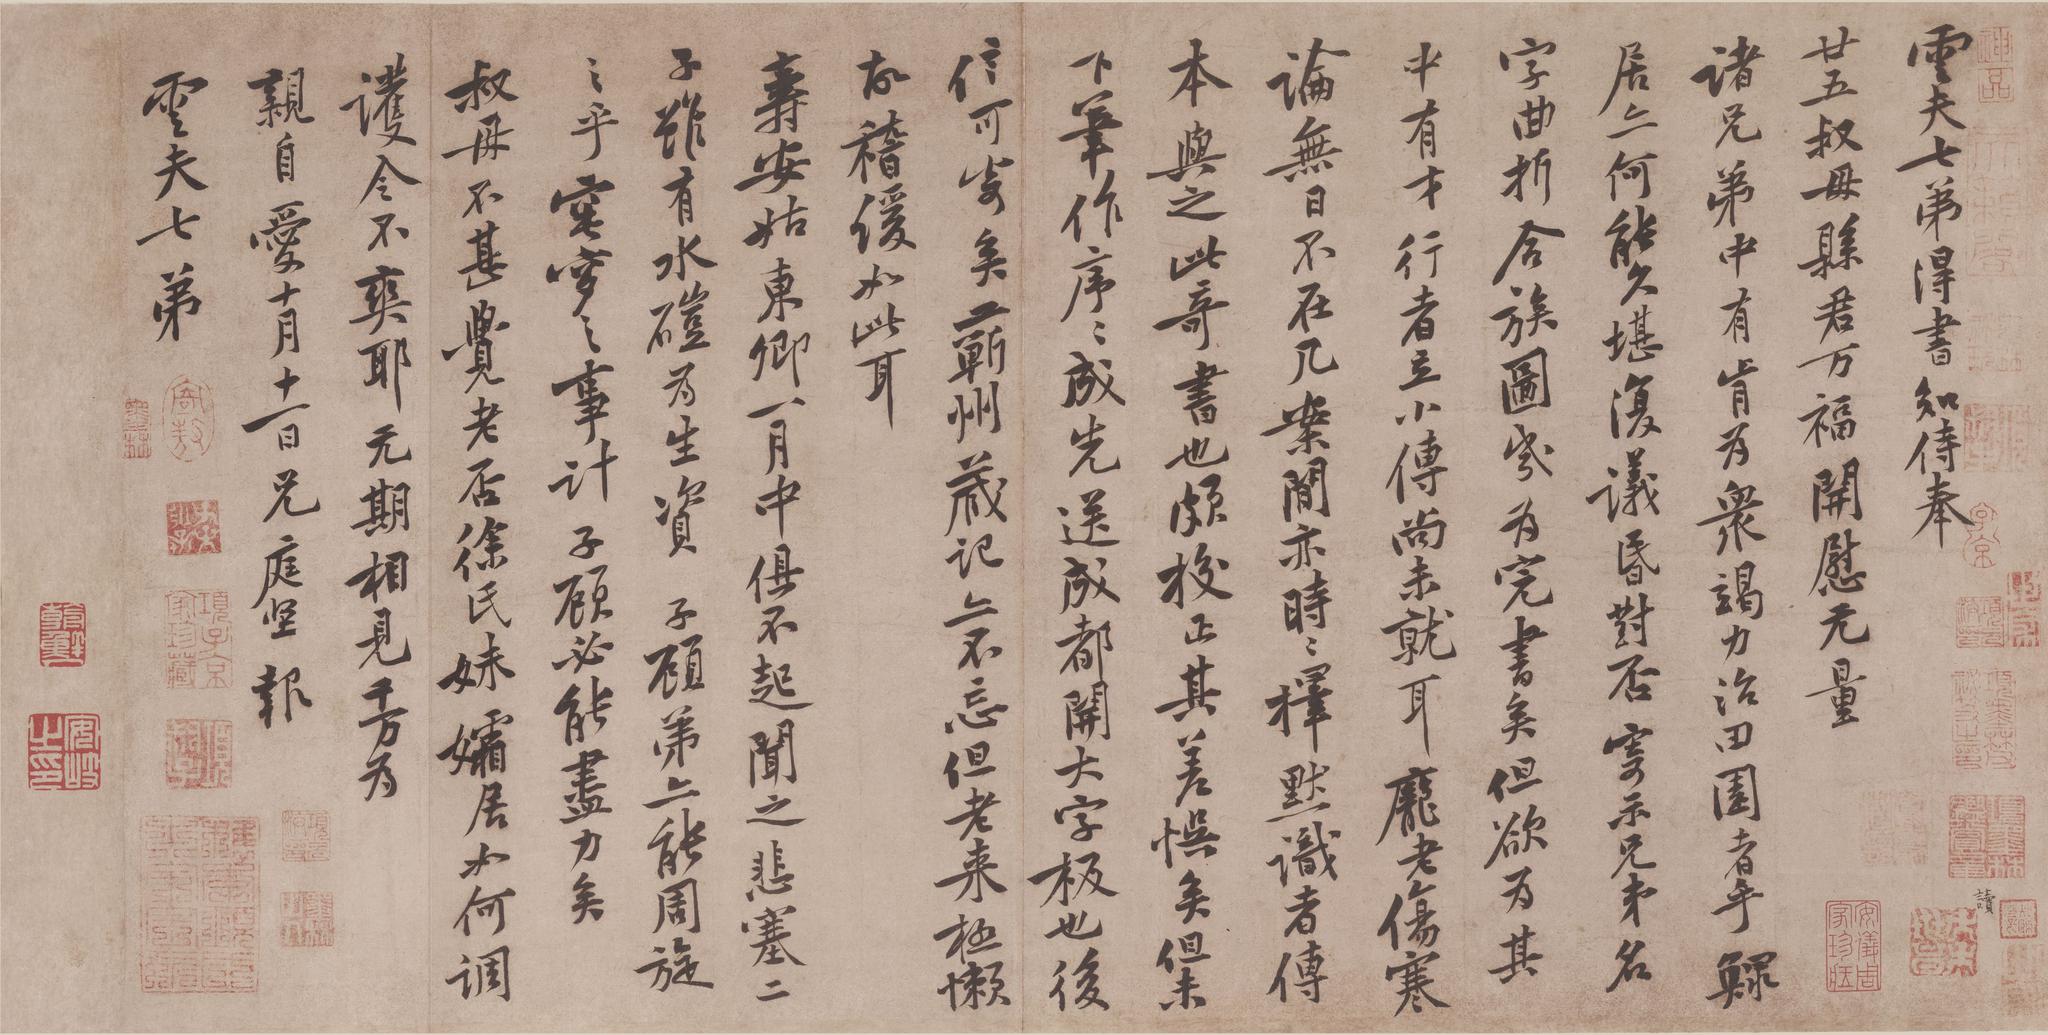 雲夫七弟得書知侍奉
廿五叔母縣君万福開慰无量
諸兄弟中有肯為衆竭力治田園者乎鰥
居亦何能久堪復議昬對否寄示兄弟名
字曲折合族圖歲為完書矣但欲為其
中有才行者立小傳尚未就耳龐老傷寒
論無日不在几案間亦時時擇默識者傳
本與之此奇書也頗校正其差悮矣但未
下筆作序序成先送成都開大字板也後
信可寄矣王蘄州藏記亦不忘但老来極懶
故稽緩如此耳
壽安姑東卿一月中俱不起聞之悲塞二
子雖有水磑為生資子顧弟亦能周旋
之乎窀穸之事計子顧必能盡力矣
叔母不甚覺老否徐氏妹孀居如何調
護令不爽耶无期相見千万為
親自愛十月十一日兄庭坚報
雲夫七弟
項子京
家珍藏
安儀周
家珍藏
安岐
之印
朝鮮
神品
子京
讀